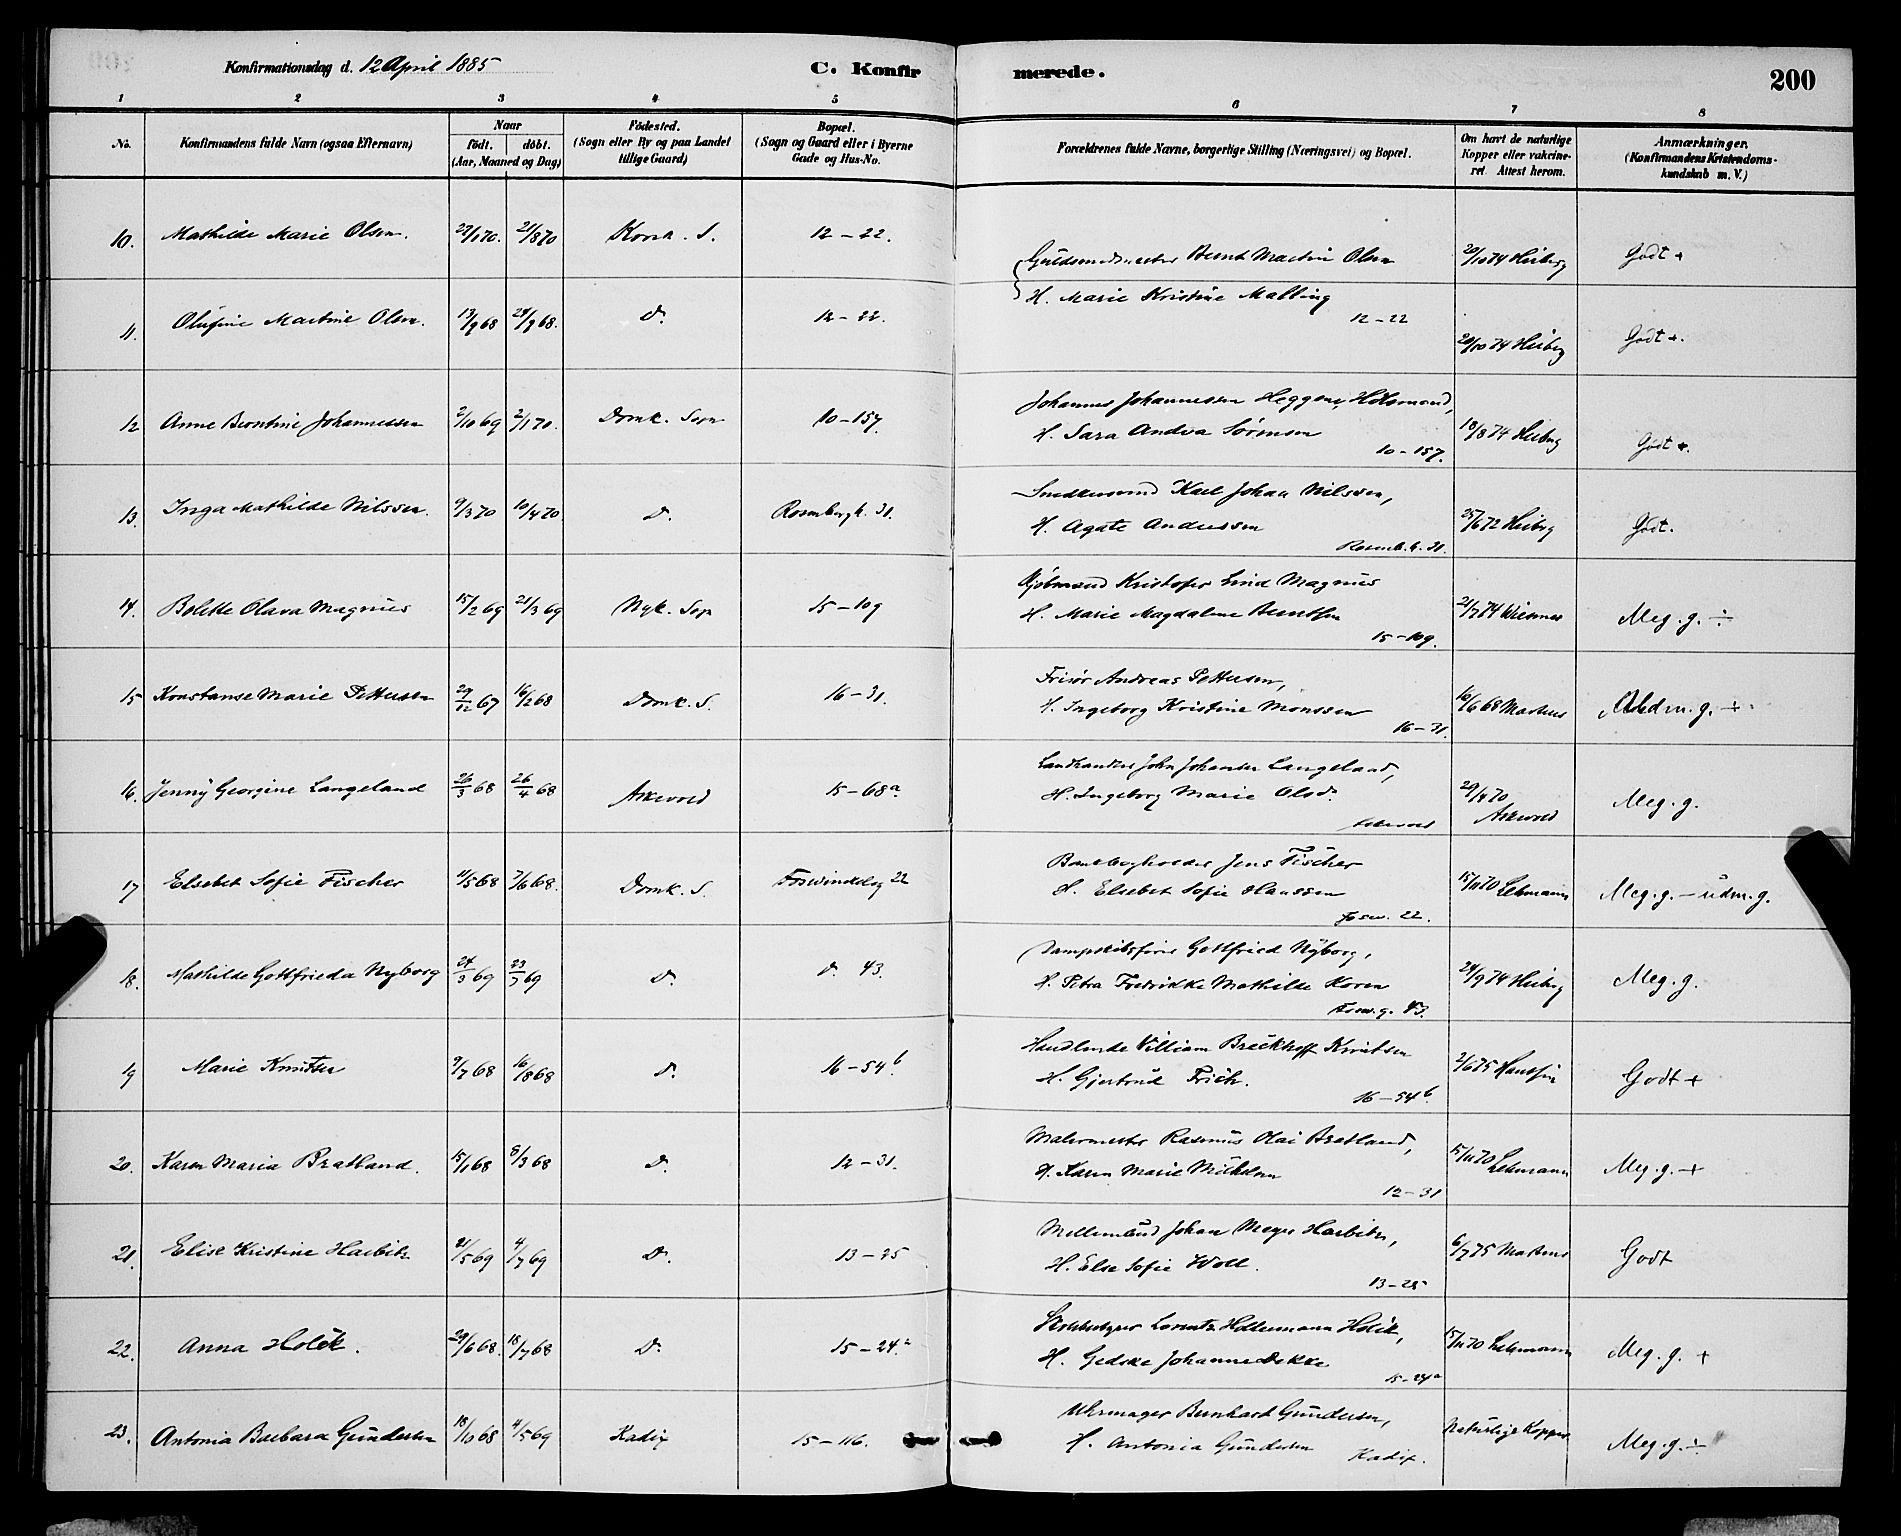 Konfirmationsdag d. 12 April 1885 C. Konfirmerede. 200
1 2 3 4 5 6 7 8
No. Konfirmandens fulde Navn (ogsaa Efternavn) Naar født. døbt. (Aar, Maaned og Dag) Fødested. (Sogn eller By og paa Landet tillige Gaard) Bopæl. (Sogn og Gaard eller i Byerne Gade og Hus-No. Forældrenes fulde Navne, borgerlige Stilling (Næringsvei) og Bopæl. Om havt de naturlige Kopper eller vakcineret. Attest herom. Anmærkninger. (Konfirmandens Kristendomskundskab m. V.)
10. Mathilde Marie Olsen. 21/8 70 Korsk. S. 12-22. Bernt Martin Olsen 20/10 74 Heiberg Godt +
H. Marie Kristine Malling
12-22
11. Olufine Martine Olsen. 13/9 68 D. 12-22. 20/10 74 Heiberg Godt +.
12 Anne Berntine Johannessen 2/10 69 2/1 70. Domk. Sogn 10-157. Johannes Johannessen
H. Sara Andrea Sørensen 18/8 74 Heiberg Godt +.
10-157.
13. Inga Mathilde Nilssen. 9/3 70 10/4 70 D. Rosenbergh. 31. Snedkersvend Karl Johan Nilssen,
H. Agate Andersen 25/6 72 Heiberg Godt.
Rosenb. h. 31.
14. Bolette Olava Magnus 15/2 69 21/3 69 Nyk. Sogn 15-109 Kristofer Lind Magnus
H. Marie Magdalene Berntsen 21/7 74 Wiesener Meg. g. ÷
15-109.
15 Konstanse Marie Pettersen 29/12 67 16/2 68 Domk. S. 16-31. Frisør Andreas Pettersen,
H. Ingeborg Kristine Monssen 16/6 68 Martens
16-31.
16. Jenny Georgine Langeland 26/3 68 26/4 68 Askevold 15-68a. Landhandler John Johansen Langeland,
H. Ingeborg Marie Olsd. 29/4 70 Askevold Meg. g.
Askevold
17 Elsebet Sofie Fischer 11/5 68 7/6 68. Domk. S. Fosswinckelsg 22 Jens Fischer
H. Elsebet Sofie Hanssen 15/11 70 Lehmann Meg. g. - udm. g.
Fosw. 22.
18. Mathilde Gottfrieda Nyborg 24/3 69 23/5 69 D. D. 43. Gottfried Nyborg,
H. Petra Fredrikke Mathilde Koren 24/9 74 Heiberg Meg. g.
Fosw. g. 43.
19 Marie Knutsen 9/7 68 16/8 68 D. 16-54b. Handlende William Breckhoff Knutsen
H. Gjertrud Frich. 2/6 75 Godt +
16-54b.
20. Karen Maria Bratland. 15/1 68 8/3 68 D. 12-31. Malermester Rasmus Olai Bratland,
H. Karen Marie Mikkelsen 15/11 70 Lehmann Meg. g. - +
12-31
21. Elise Kristine Harbitz 21/5 69 4/7 69 D. 13-25 Johan Meyer Harbitz,
H. Else Sofie Woll. 6/7 75 Martens Godt
13-25
22. Anna Holck. 29/6 68. 18/7 68 D. 15-24.a Lorentz Holtermann Holck,
H. Gedske Johanne Dekke 15/11 70 Lehmann Meg. g. +
15-24a
23. Antonia Barbara Gundersen 18/10 68 4/5 69 Kadix 15-116. Uhrmager Bernhard Gundersen,
H. Antonia Gundersen Naturlige Kopper Meg. g. ÷
Kadix.